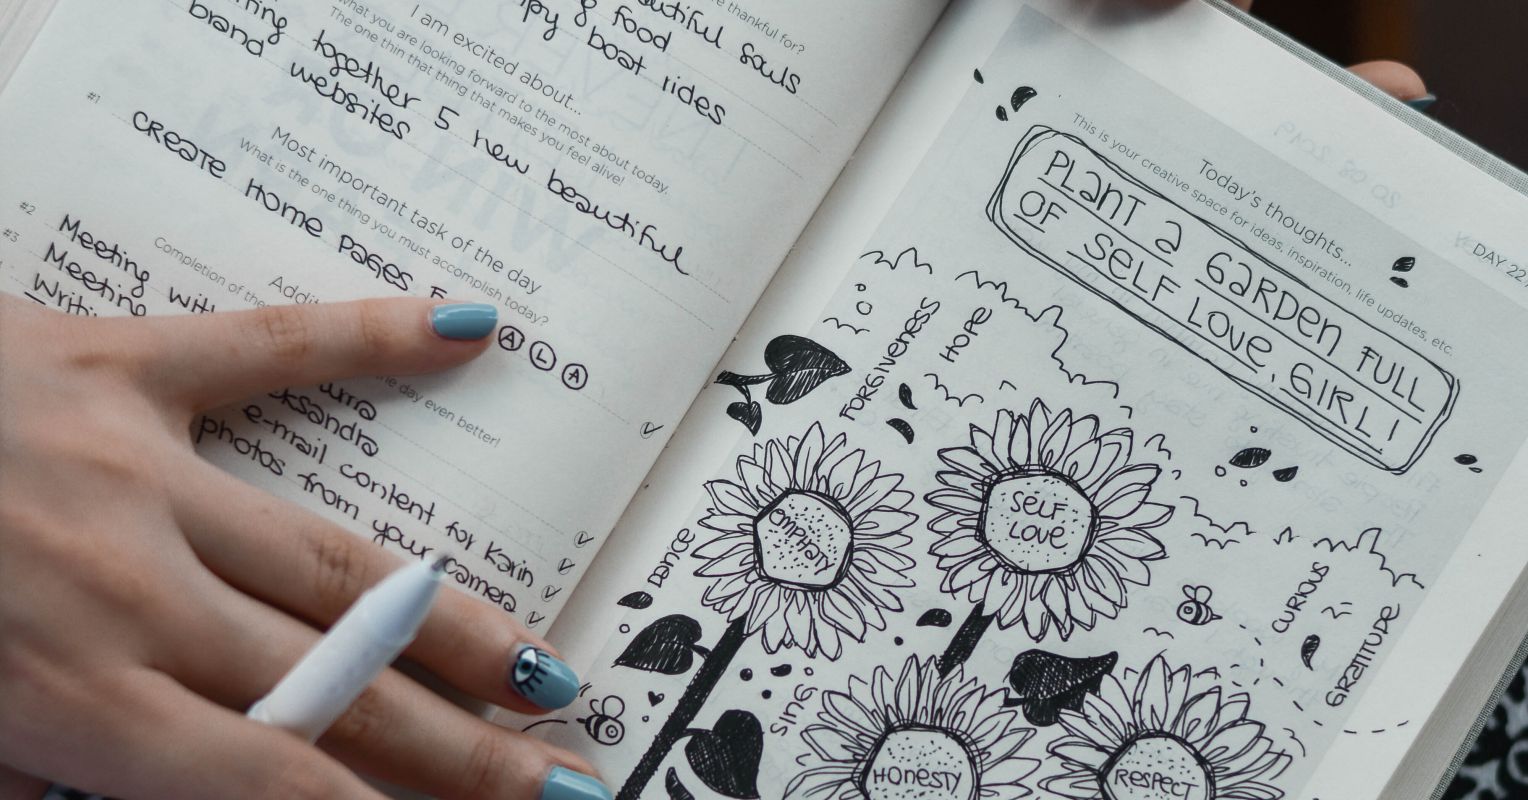 thankful for?
beautiful souls
& food
& boat rides
I am excited about...
What you are looking forward to the most about today.
The one thin that thing that makes you feel alive!
together 5 new beautiful
brand websites
Most important task of the day
What is the one thing you must accomplish today?
#1
CREATE HOME PAGES
A L A
#2
Meeting with
#3
Meeting
Completion of the
the day even better!
e-mail content for Karin
photos from your camera
DAY 22
Today's thoughts...
This is your creative space for ideas, inspiration, life updates, etc.
PLANT a GARDEN FULL
OF SELF LOVE, GIRL!
FORGIVENESS
HOPE
EMPHATY
SELF
LOVE
DANCE
CURIOUS
GRATITUDE
SING
HONESTY
RESPECT